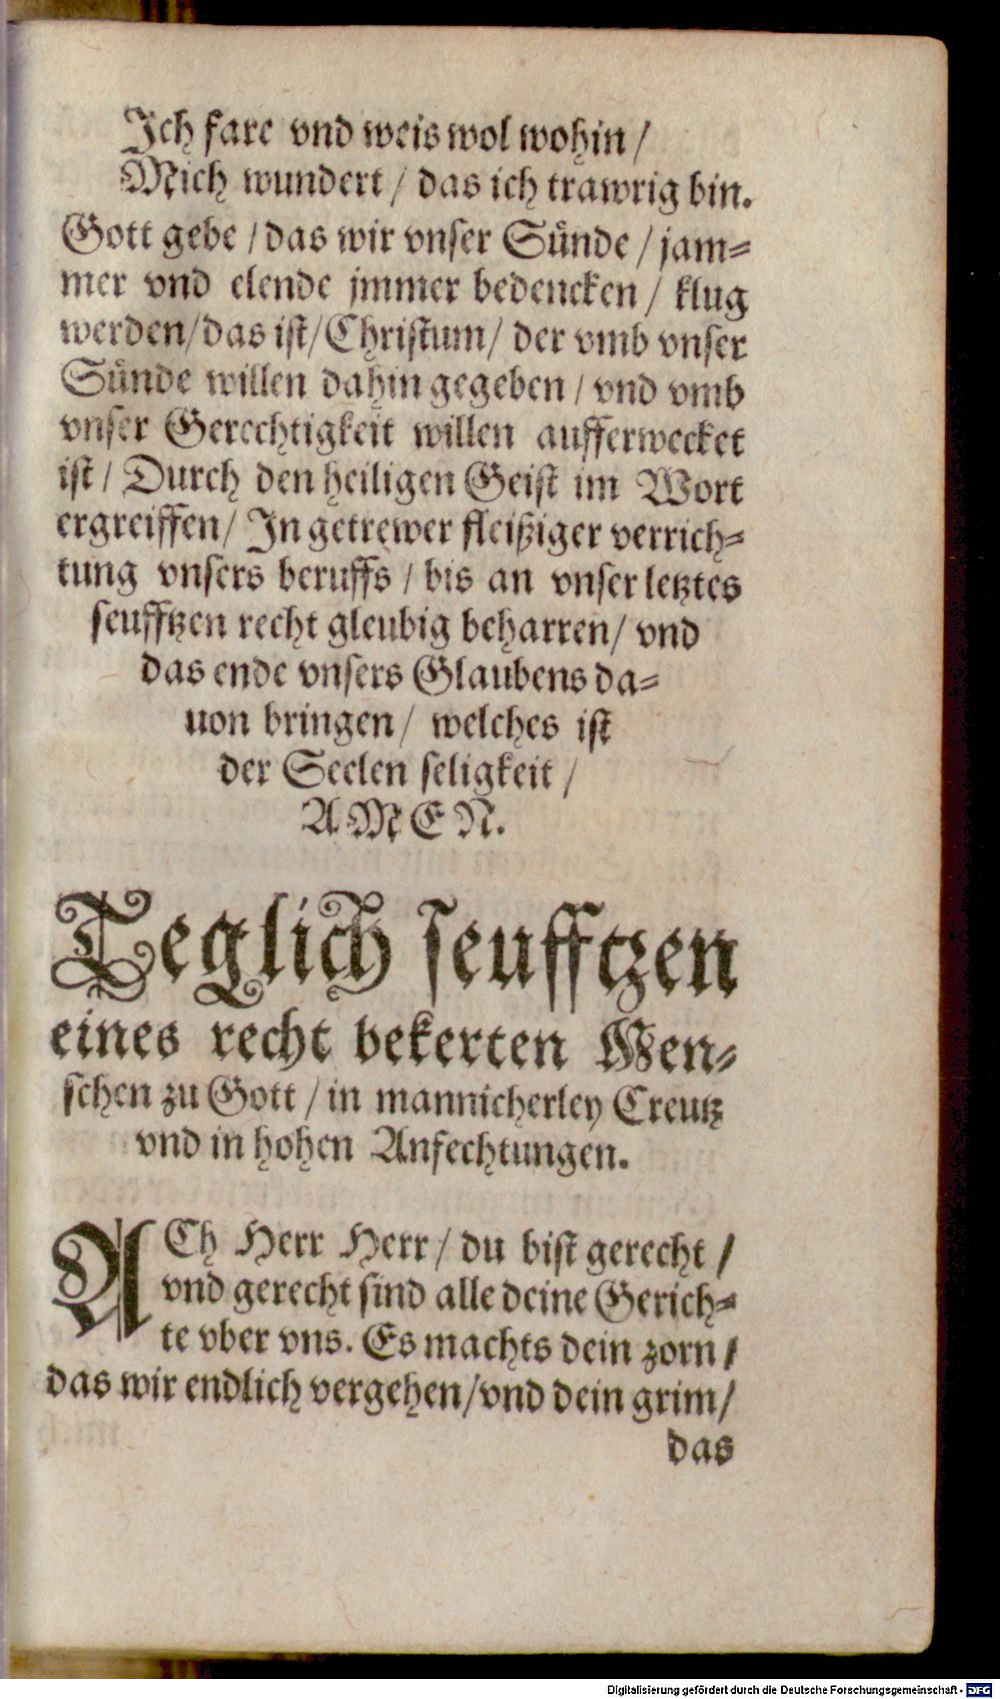 Ich fare vnd weis wol wohin /
Mich wundert / das ich trawrig bin.
Gott gebe / das wir vnser Sünde / jam-
mer vnd elende jmmer bedencken / klug
werden / das ist / Christum / der vmb vnser
Sünde willen dahin gegeben / vnd vmb
vnser Gerechtigkeit willen aufferwecket
ist / Durch den heiligen Geist im Wort
ergreiffen / In getrewer fleißiger verrich-
tung vnsers beruffs / bis an vnser letztes
seufftzen recht gleubig beharren / vnd
das ende vnsers Glaubens da-
uon bringen / welches ist
der Seelen seligkeit /
AMEN.
Teglich seufftzen
eines recht bekerten Men-
schen zu Gott / in mannicherley Creutz
vnd in hohen Anfechtungen.
ACh Herr Herr / du bist gerecht /
vnd gerecht sind alle deine Gerich-
te vber vns. Es machts dein zorn /
das wir endlich vergehen / vnd dein grim /
das
Digitalisierung gefördert durch die Deutsche Forschungsgemeinschaft - DFG